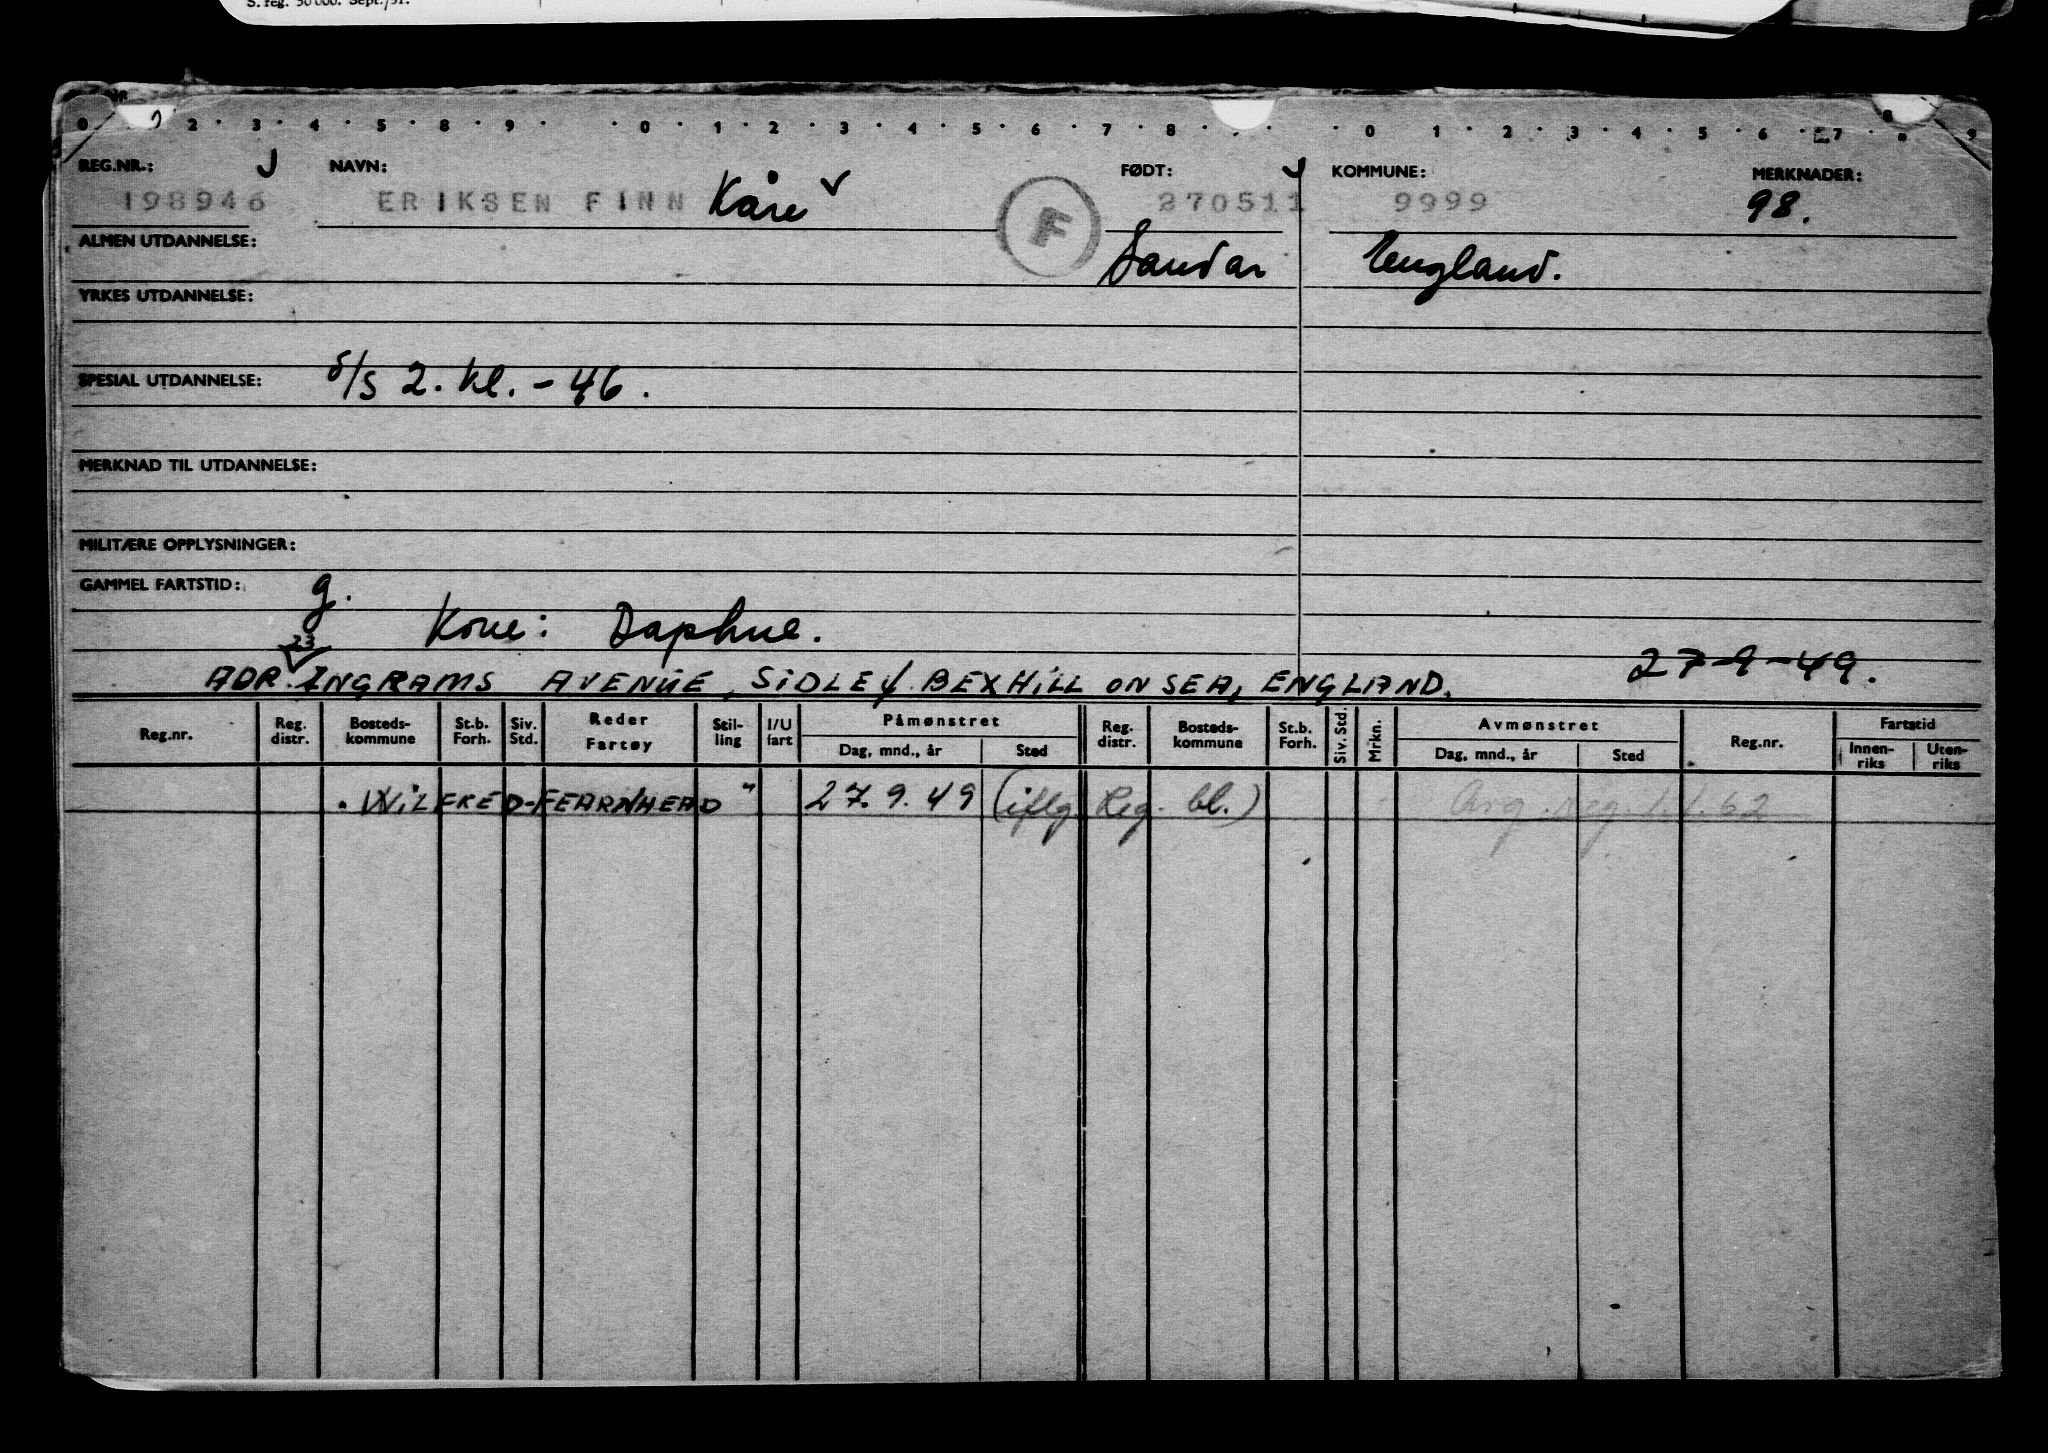 S. reg. 50 000. Sept./51.
0 2 3 4 5 8 9 0 1 2 3 4 5 6 7 8 0 1 2 3 4 5 6 7 8 9
REG.NR.: NAVN: FØDT: KOMMUNE: MERKNADER:
198946 ERIKSEN FINN Kåre F 270511 9999 98.
ALMEN UTDANNELSE: Sandar England.
YRKES UTDANNELSE:
SPESIAL UTDANNELSE: s/s 2. kl. - 46.
MERKNAD TIL UTDANNELSE:
MILITÆRE OPPLYSNINGER:
GAMMEL FARTSTID: g.
Kone: Daphne.
23
ADR. INGRAMS AVENUE, SIDLEY BEXHILL ON SEA, ENGLAND. 27-9-49.
Reg.nr. Reg. distr. Bosteds-kommune St.b. Forh. Siv. Std. Reder Fartøy Stil-ling I/U fart Påmønstret Dag, mnd., år Sted Reg. distr. Bosteds-kommune St.b. Forh. Siv. Std. Mrkn. Avmønstret Dag, mnd., år Sted Reg.nr. Fartstid Innen-riks Uten-riks
WILFRED-FEARNHEAD" 27.9.49 (iflg. Reg. bl.) reg. 1.1.62